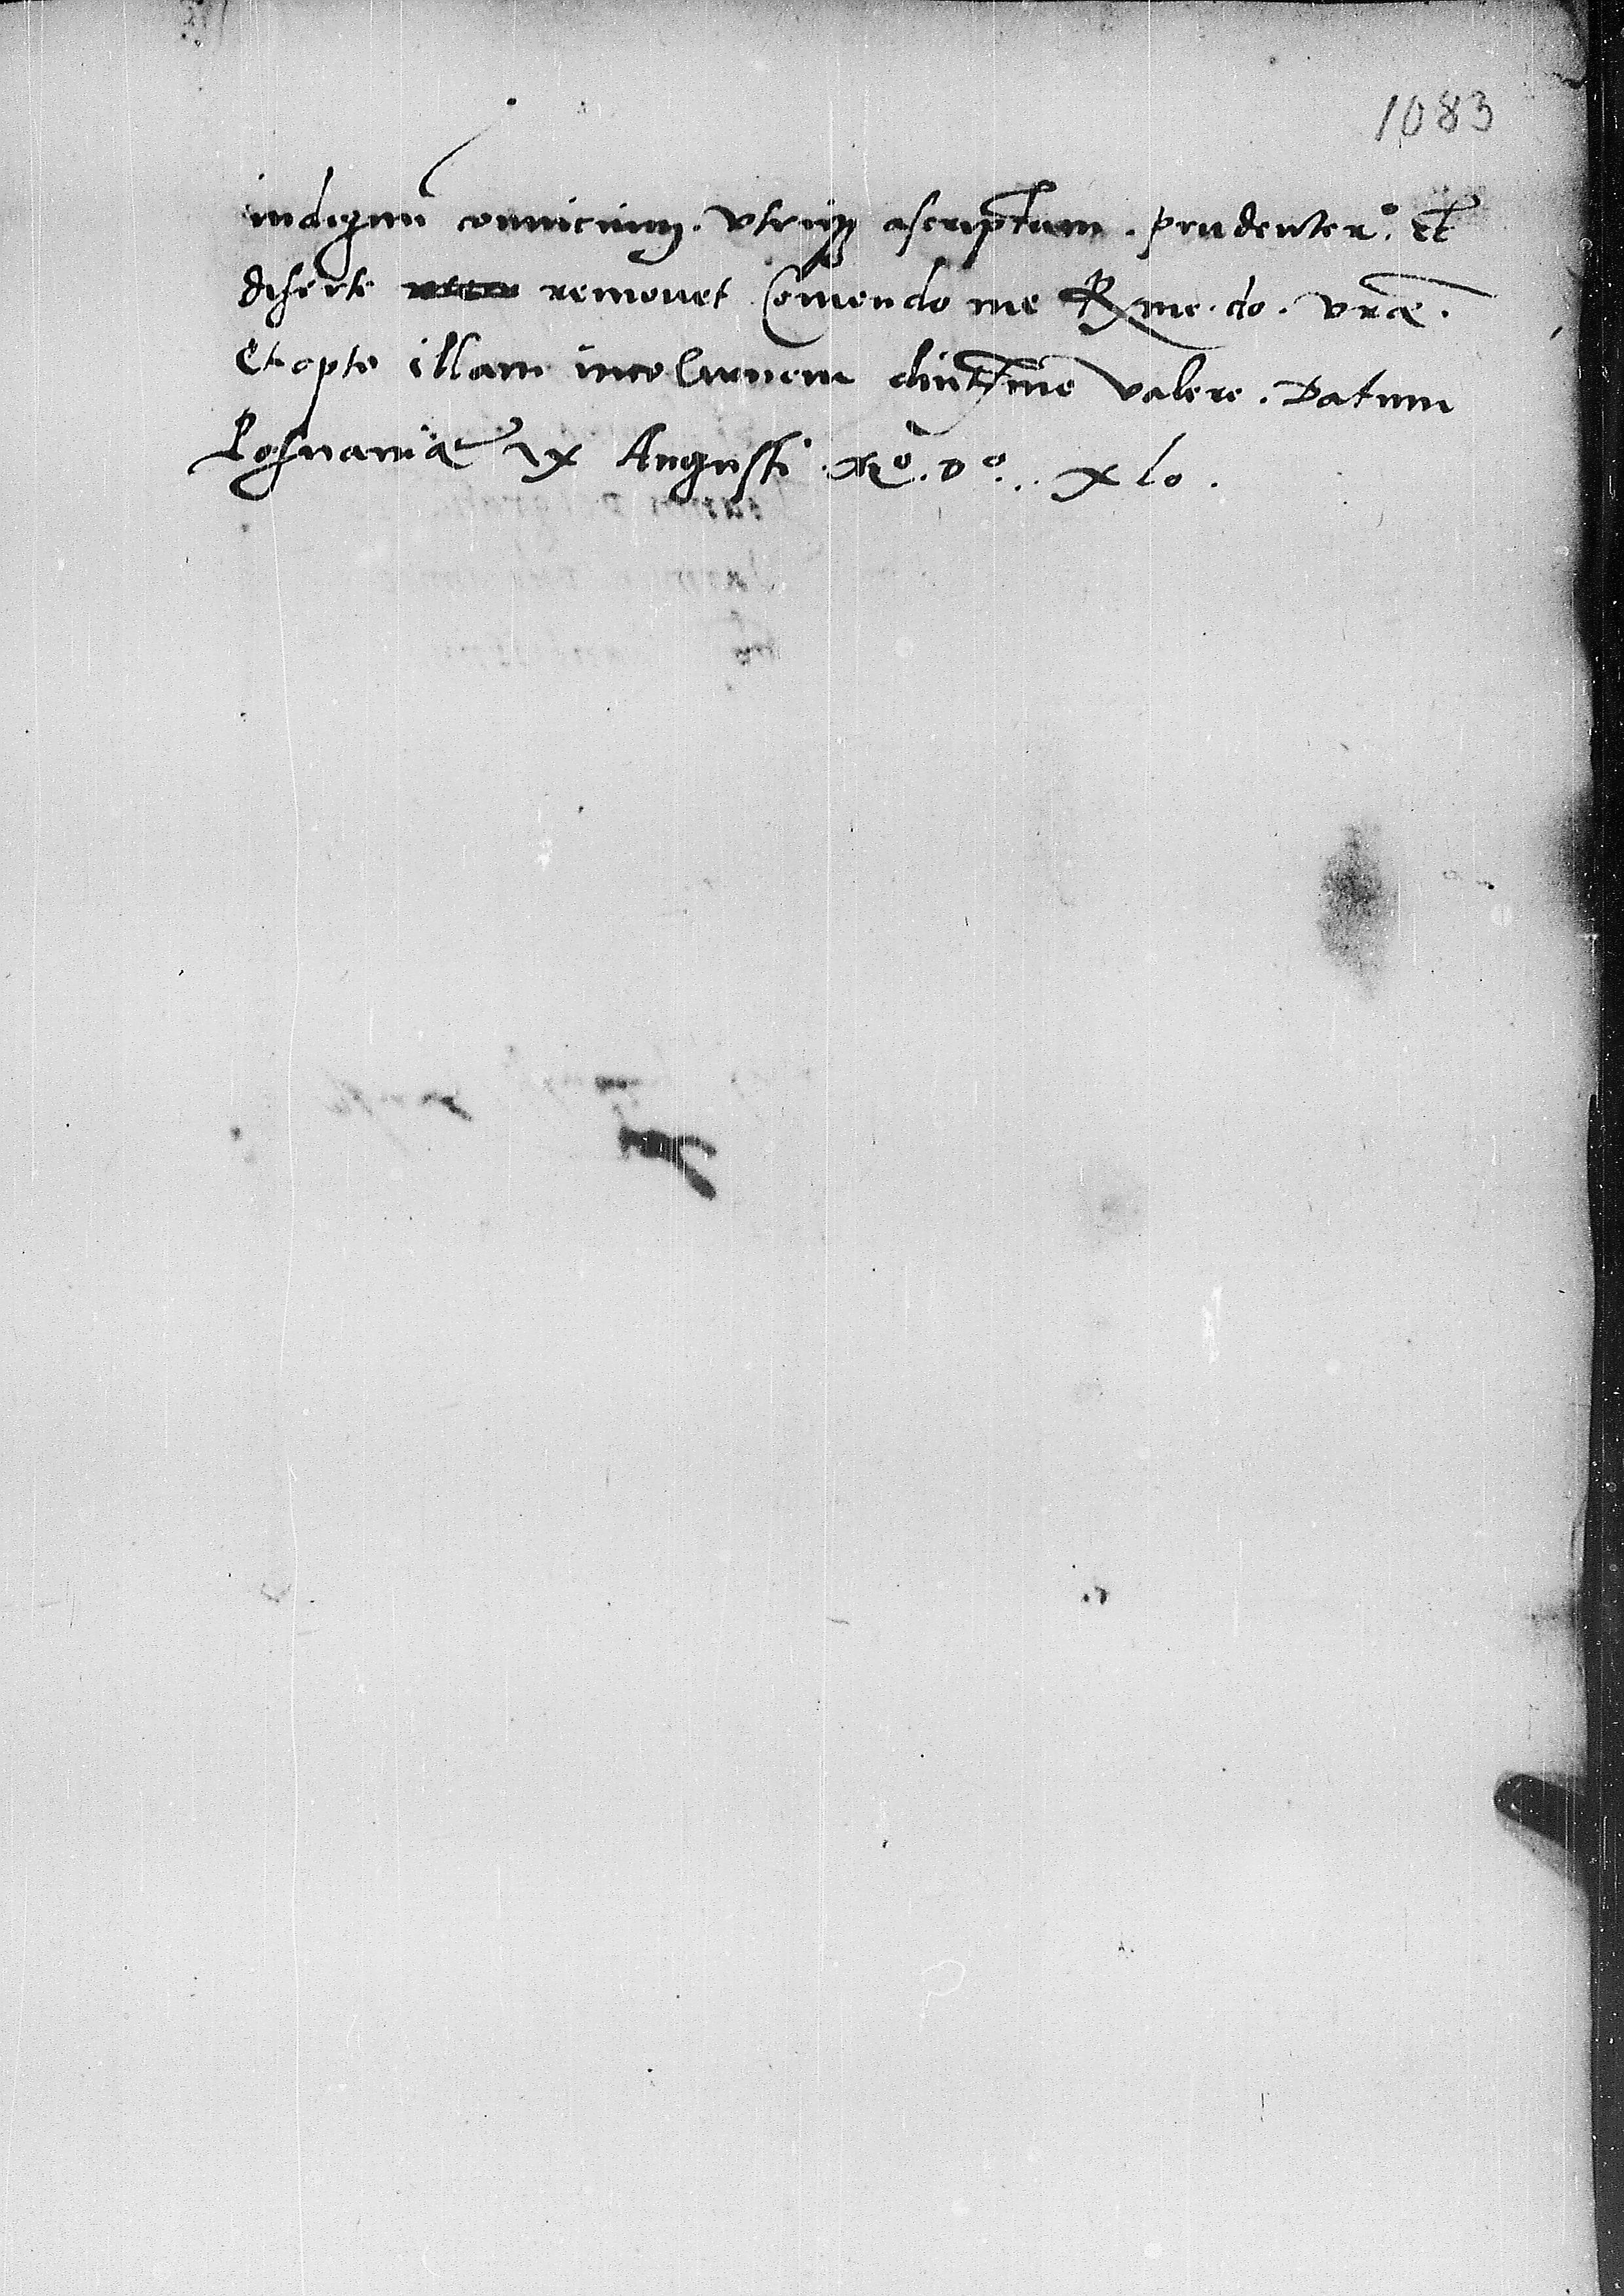 1083
indignũ conuicium. Utriqз ascriptum. prudenter. et
diserte remouet Comendo me Rme. do. vrae.
Et opto illam incolumem diutme valere. Datum
Posnaniae IX Augusti. Xlo.